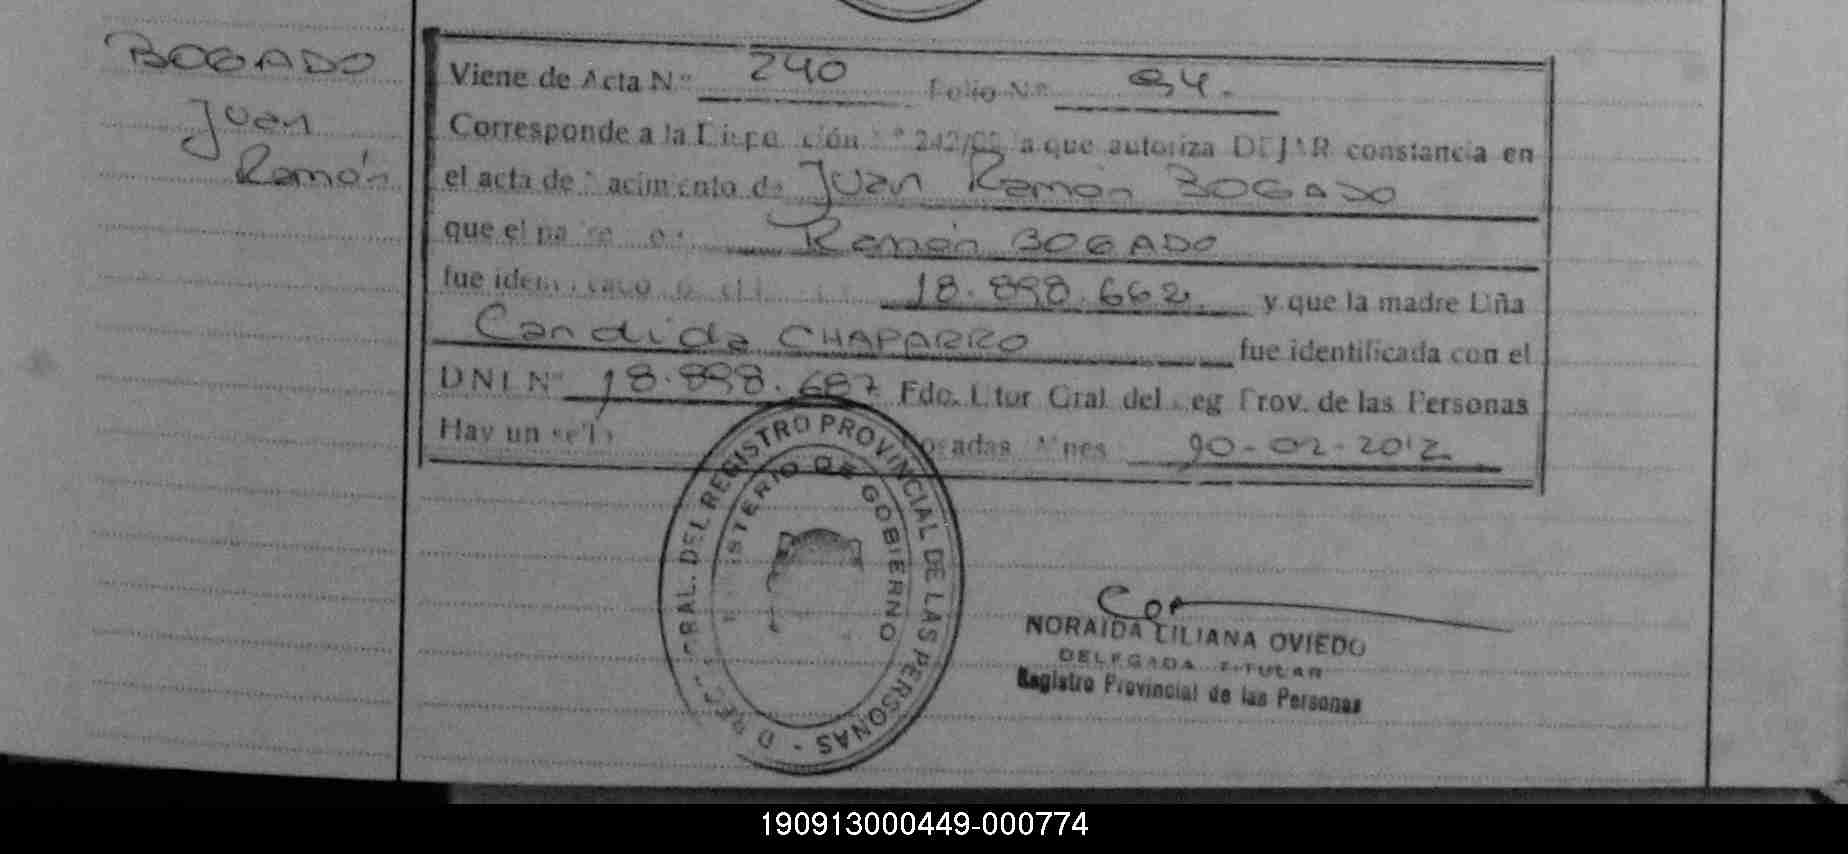 BOGADO
Juan
Ramón
Viene de Acta Nº 240 Folio Nº 94.
Corresponde a la 242/ a que autoriza DEJAR constancia en
el acta de Nacimiento de Juan Ramón BOGADO
que el padre Ramón BOGADO
fue 18.898.662 y que la madre Dña
Candida CHAPARRO fue identificada con el
DNI Nº 18.898.687 Fdo. Dtor Gral del Reg Prov. de las Personas
Hay un sello Posadas Mnes -02-2012
REGISTRO PROVINCIAL DE LAS PERSONAS
MINISTERIO DE GOBIERNO
NORAIDA LILIANA OVIEDO
DELEGADA TITULAR
Registro Provincial de las Personas
190913000449-000774